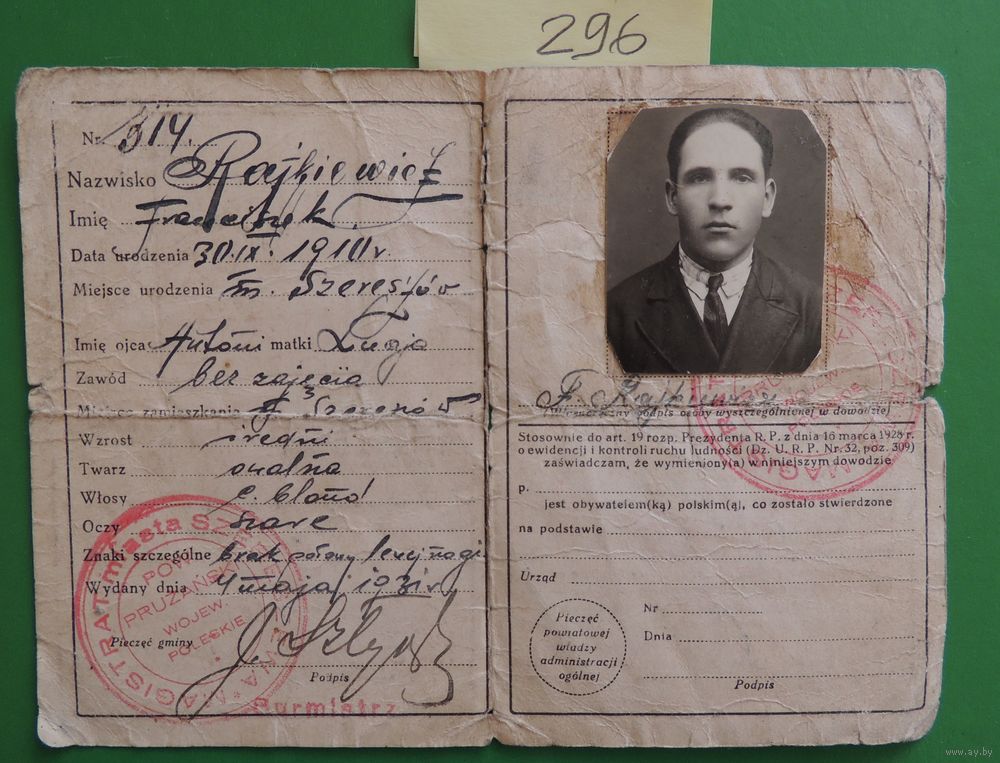 296
Nr 314.
Nazwisko Rajkiewicz
Imię Franciszek
Data urodzenia 30.IX.1910 r
Miejsce urodzenia m. Szereszów
Imię ojca Antoni matki
Zawód bez zajęcia
Miejsce zamieszkania Szereszów
Wzrost średni
Twarz owalna
Włosy c. blond
Oczy szare
Znaki szczególne brak połowy lewej nogi
Wydany dnia 4 maja 1931 r
Pieczęć gminy
Podpis
Burmistrz
MAGISTRAT miasta
POW.
PRUŻAŃSKI
WOJEW.
POLESKIE
F. Rajkiewicz
Własnoręczny podpis osoby wyszczególnionej w dowodzie
Stosownie do art. 19 rozp. Prezydenta R. P. z dnia 16 marca 1928 r.
o ewidencji i kontroli ruchu ludności (Dz. U. R. P. Nr. 32, poz. 309)
zaświadczam, że wymieniony(a) w niniejszym dowodzie
p.
jest obywatelem(ką) polskim(ą), co zostało stwierdzone
na podstawie
Urząd
Pieczęć
powiatowej
władzy
administracji
ogólnej
Nr
Dnia
Podpis
www.ay.by